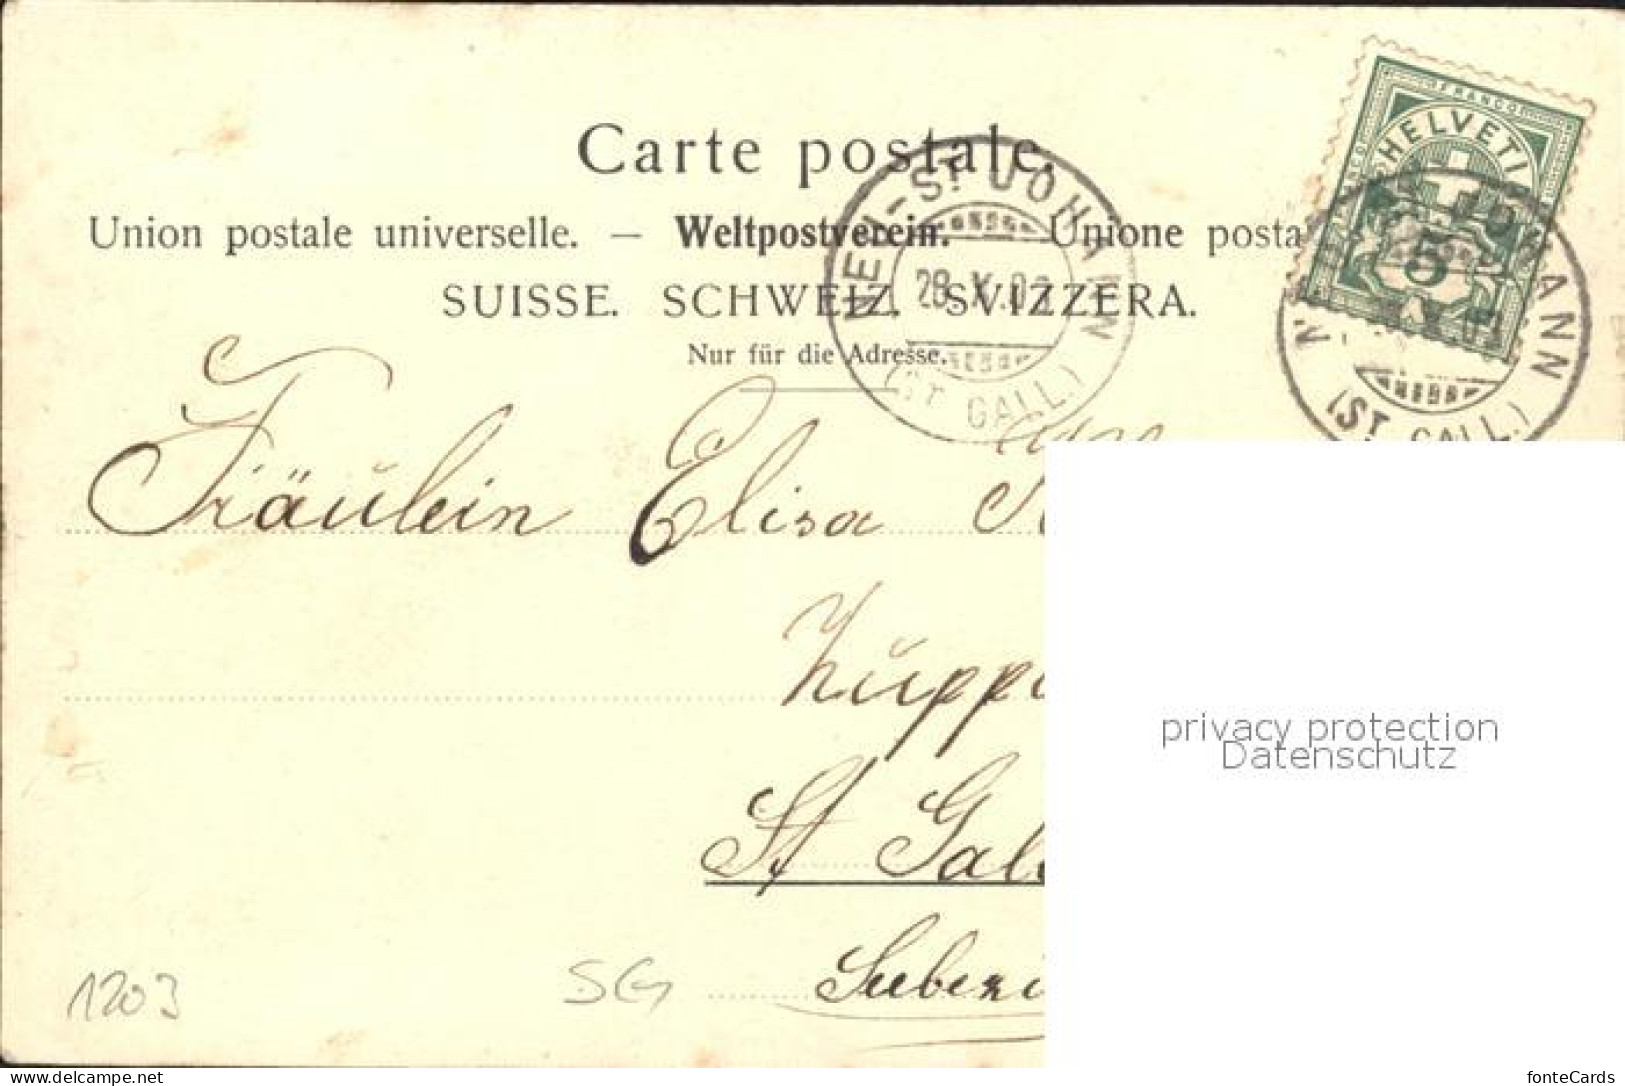 Carte postale.
Union postale universelle. — Weltpostverein. Unione posta
SUISSE. SCHWEIZ. SVIZZERA.
Nur für die Adresse.
NEU-ST JOHANN
28.X.02
(ST. GALL.)
FRANCO
HELVETI
5
JOHANN
(ST. GALL.)
Fräulein Elisa
St Gal
privacy protection
Datenschutz
1203
SG
www.delcampe.net
fonteCards